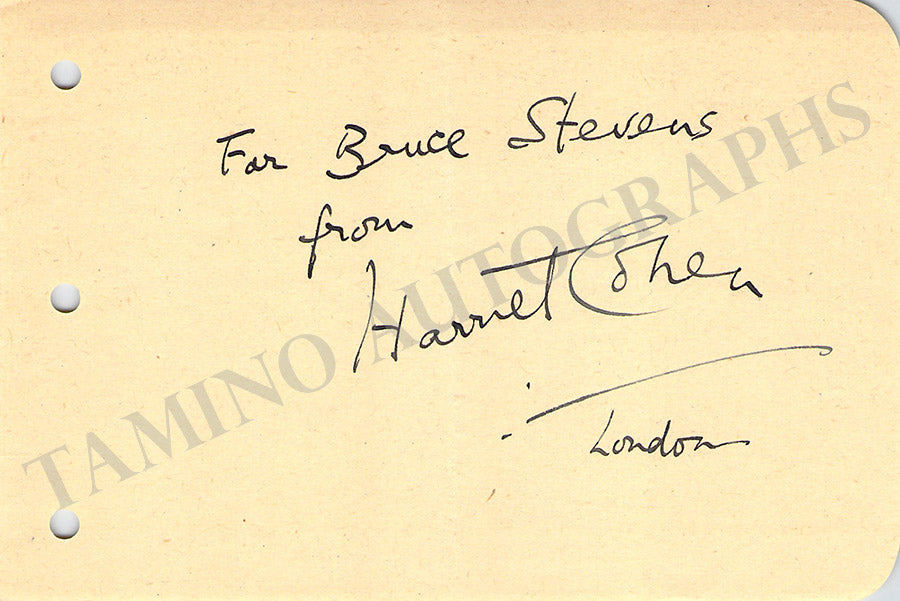 For Bruce Stevens
from
Harriet Cohen
London
TAMINO AUTOGRAPHS